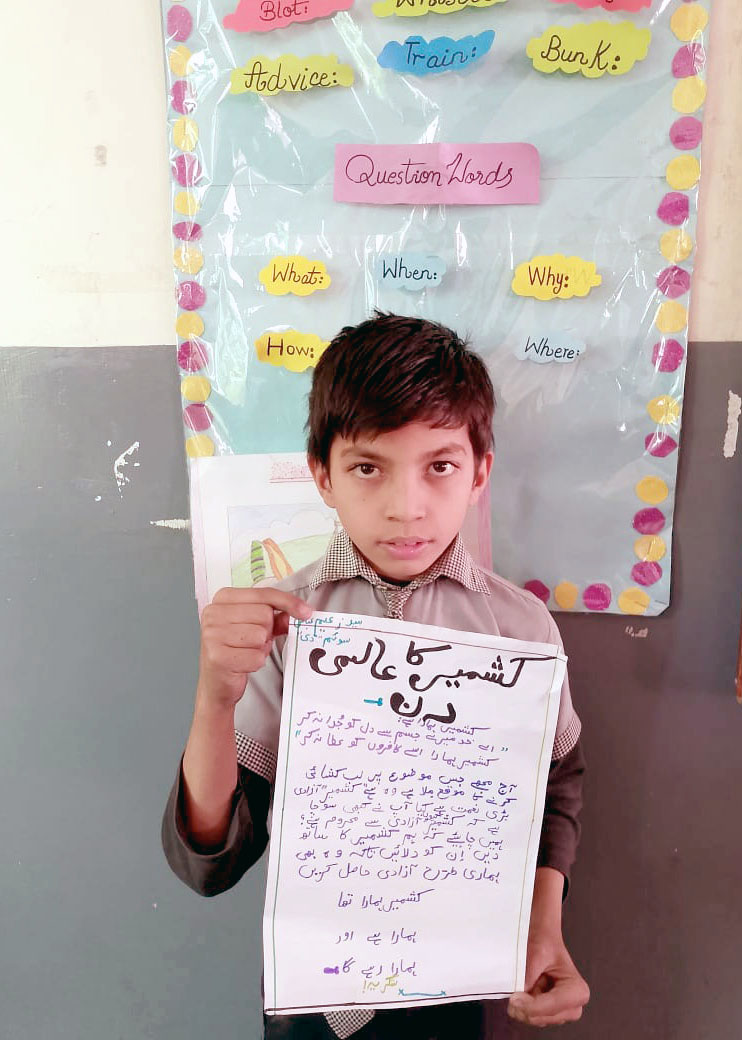 Blot:
Advice:
Train:
Bunk:
Question Words
What:
When:
Why:
How:
Where:
کشمیر کا عالمی
دن
کشمیر ہمارا ہے!
"اے خدا میرے جسم سے دل کو جُدا نہ کر
کشمیر ہمارا اسے کافروں کو عطا نہ کر"
آج مجھے جس موضوع پر لب کشائی
کرنے کا موقع ملا ہے وہ ہے "کشمیر" آزادی
بڑی نعمت ہے کیا آپ نے کبھی سوچا
ہے کہ کشمیر آزادی سے محروم ہے؟
ہمیں چاہئے کہ ہم کشمیر کا ساتھ
دیں اِن کو دلائیں تاکہ وہ بھی
ہماری طرح آزادی حاصل کریں
کشمیر ہمارا تھا
ہمارا ہے اور
ہمارا رہے گا
شکریہ!